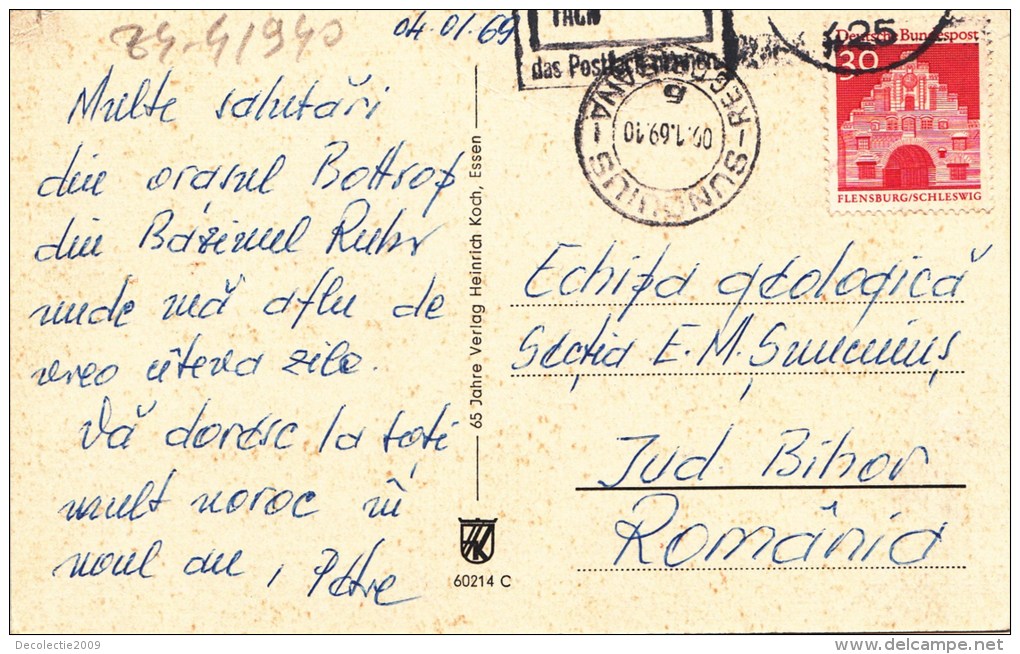 Z4-41940
04.01.69
FACH
das Postfach
425
Deutsche Bundespost
30
FLENSBURG/SCHLESWIG
5
00.1.69.10
Multe salutări
din orasul Bottrop
din Bazinul Ruhr
unde mă aflu de
vreo cîteva zile.
Vă doresc la toți
mult noroc în
noul an, Petre
65 Jahre Verlag Heinrich Koch, Essen
60214 C
Echipa geologică
Secția E.M. Șuncuiuș
Jud. Bihor
România
Decolectie2009
delcampe.net